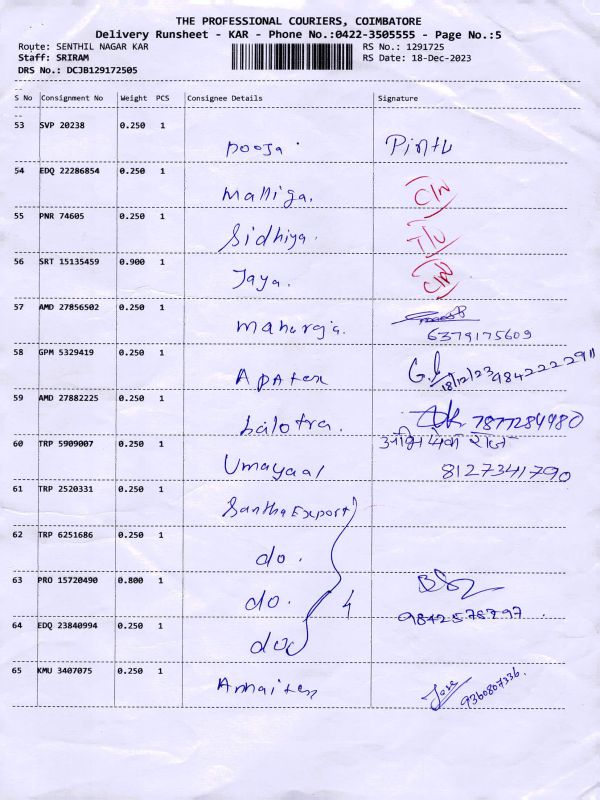 THE PROFESSIONAL COURIERS, COIMBATORE
Delivery Runsheet - KAR - Phone No.:0422-3505555 - Page No.:5
Route: SENTHIL NAGAR KAR RS No.: 1291725
Staff: SRIRAM RS Date: 18-Dec-2023
DRS No.: DCJB129172505
S No Consignment No Weight PCS Consignee Details Signature
53 SVP 20238 0.250 1
Pooja
54 EDQ 22286854 0.250 1
Malliga. C/N
55 PNR 74605 0.250 1
Sidhiya.
56 SRT 15135459 0.900 1
Jaya. C/N
57 AMD 27856502 0.250 1
Maharaja. 6379175609
58 GPM 5329419 0.250 1
Apatex 18/12/23 9842222911
59 AMD 27882225 0.250 1
Lalotra. 7877284980
60 TRP 5909007 0.250 1
Umayaal 8127341790
61 TRP 2520331 0.250 1
Santha Export
62 TRP 6251686 0.250 1
do.
63 PRO 15720490 0.800 1
do. 4
64 EDQ 23840994 0.250 1
do
65 KMU 3407075 0.250 1
Annaitex Jose 9360807336.